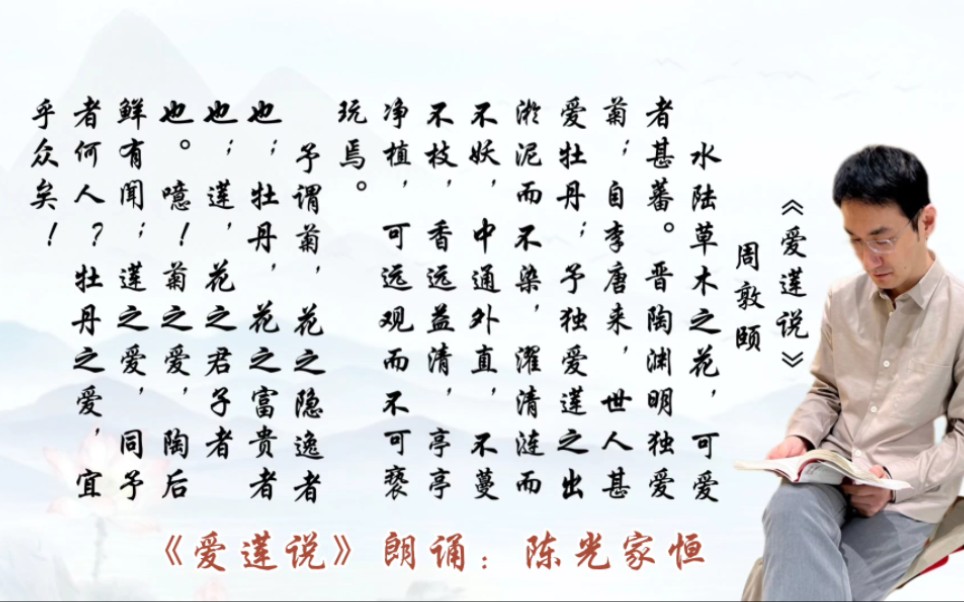 《爱莲说》
周敦颐
水陆草木之花，可爱
者甚蕃。晋陶渊明独爱
菊；自李唐来，世人甚
爱牡丹；予独爱莲之出
淤泥而不染，濯清涟而
不妖，中通外直，不蔓
不枝，香远益清，亭亭
净植，可远观而不可亵
玩焉。
予谓菊，花之隐逸者
也；牡丹，花之富贵者
也；莲，花之君子者
也。噫！菊之爱，陶后
鲜有闻；莲之爱，同予
者何人？牡丹之爱，宜
乎众矣！
《爱莲说》朗诵：陈光家恒